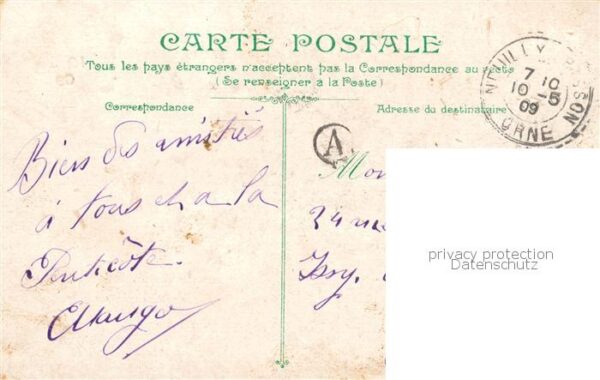 CARTE POSTALE
Tous les pays étrangers n'acceptent pas la Correspondance au recto
(Se renseigner à la Poste)
Correspondance
Adresse du destinataire
NEUILLY
7 10
10 - 5
09
ORNE
A
Biens des amitiés
à tous et à la
Pentecôte.
Mon
24 rue
Issy.
privacy protection
Datenschutz